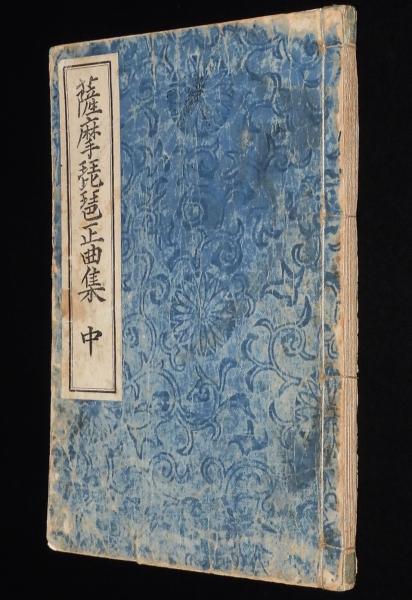 薩摩琵琶正曲集 中